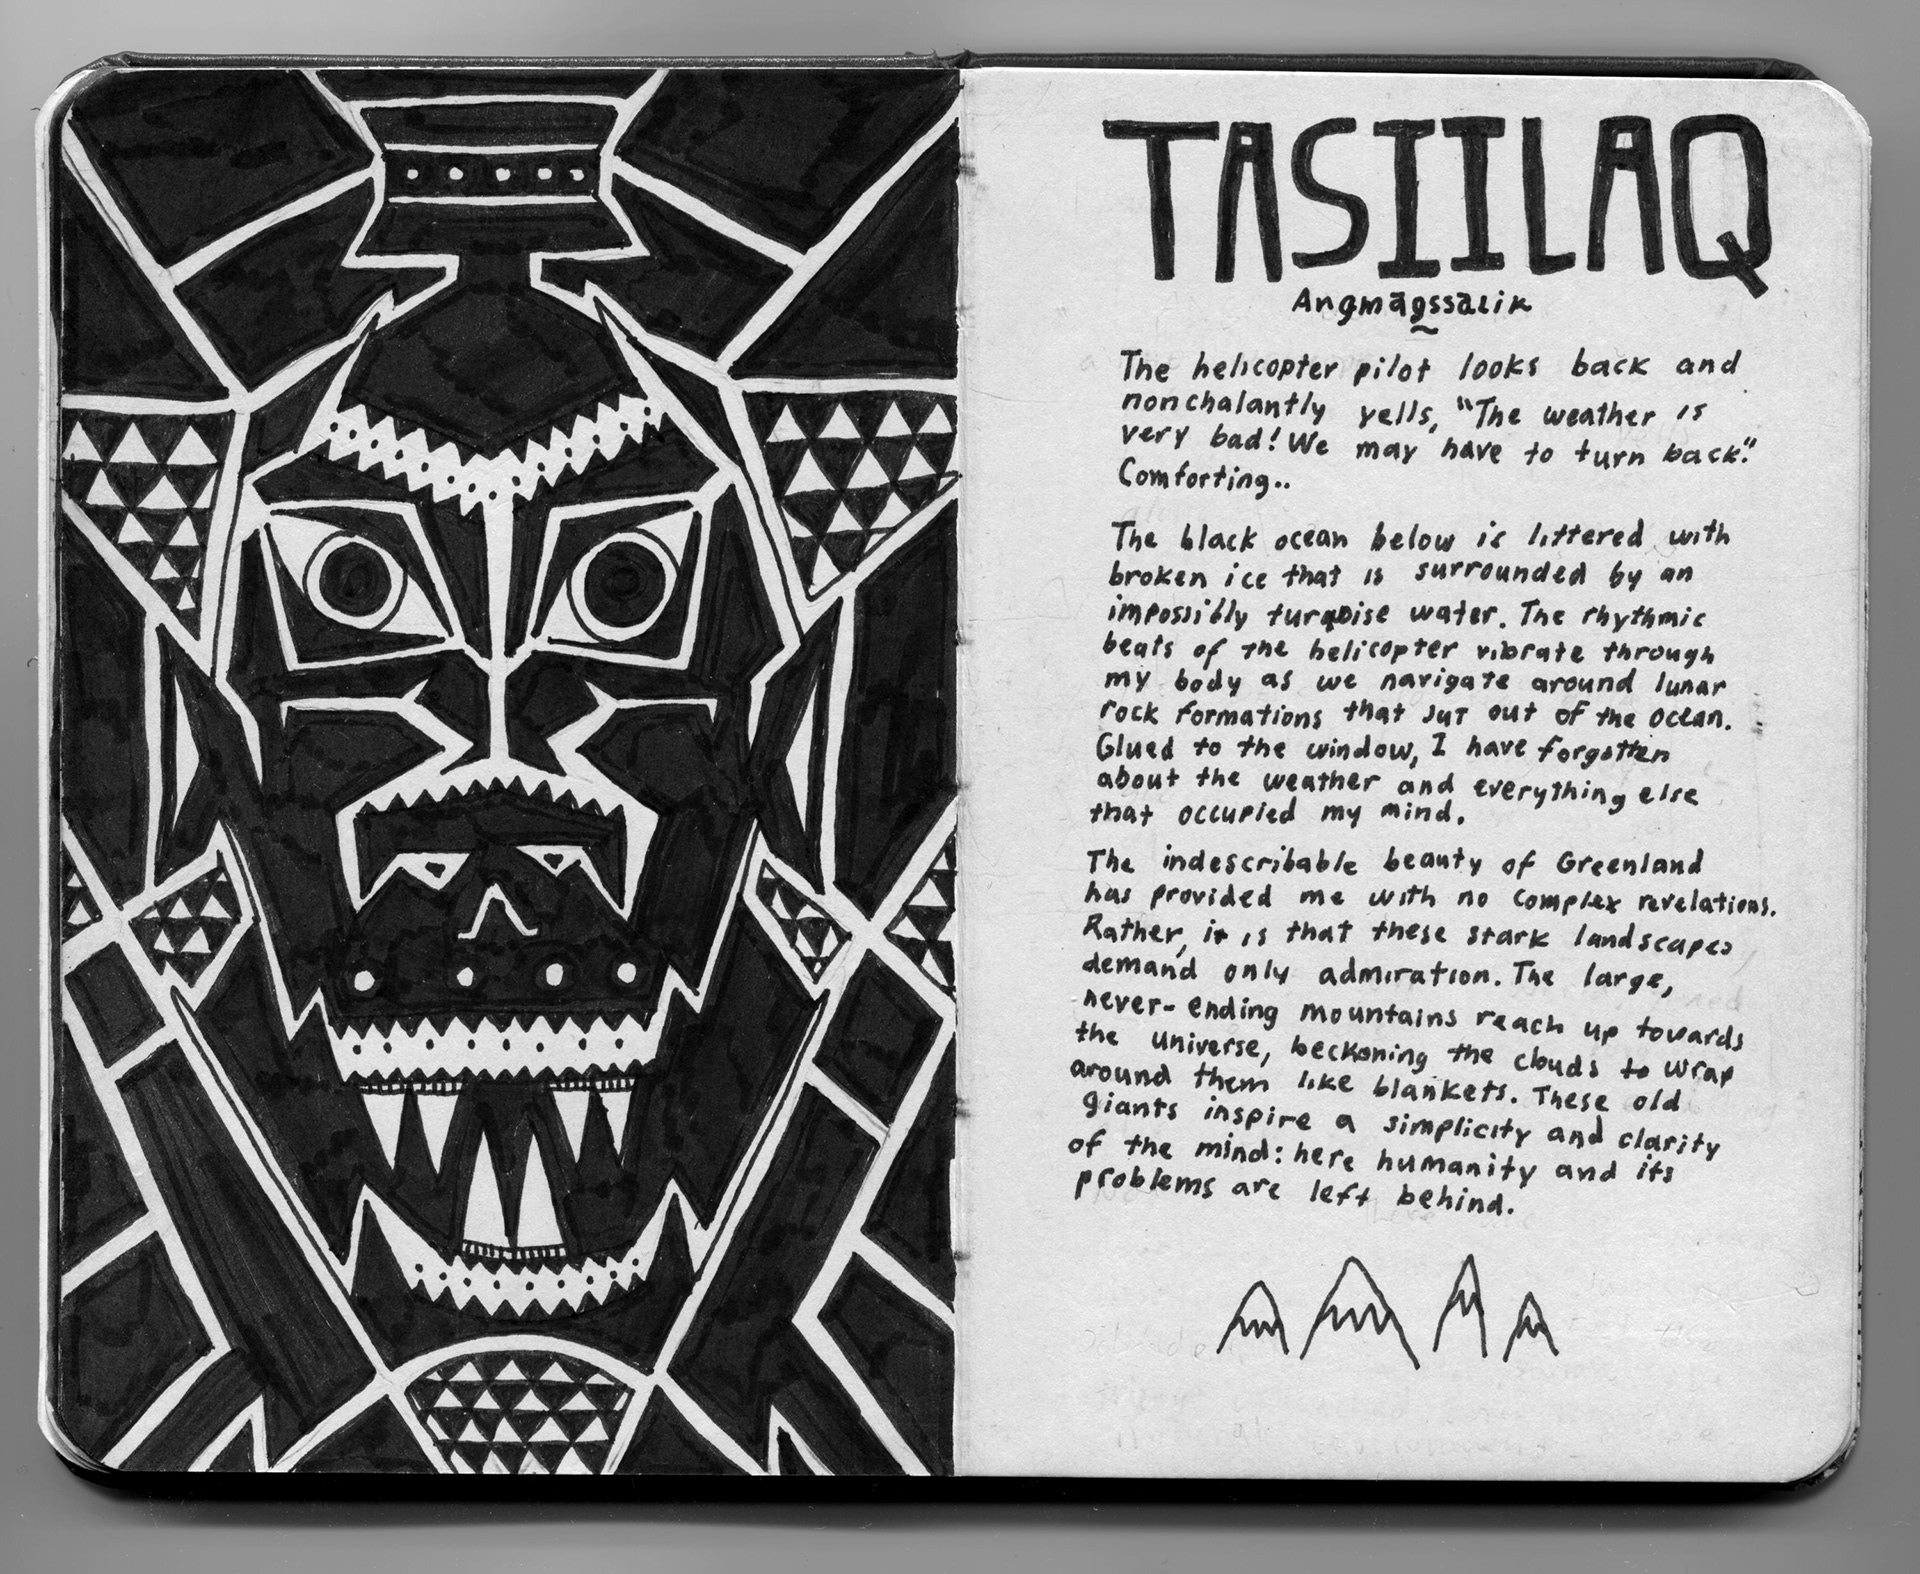 TASIILAQ
Angmagssalik
The helicopter pilot looks back and
nonchalantly yells, "The weather is
very bad! We may have to turn back".
Comforting..
The black ocean below is littered with
broken ice that is surrounded by an
impossibly turqoise water. The rhythmic
beats of the helicopter vibrate through
my body as we navigate around lunar
rock formations that jut out of the ocean.
Glued to the window, I have forgotten
about the weather and everything else
that occupied my mind.
The indescribable beauty of Greenland
has provided me with no complex revelations.
Rather, it is that these stark landscapes
demand only admiration. The large,
never-ending mountains reach up towards
the universe, beckoning the clouds to wrap
around them like blankets. These old
giants inspire a simplicity and clarity
of the mind: here humanity and its
problems are left behind.